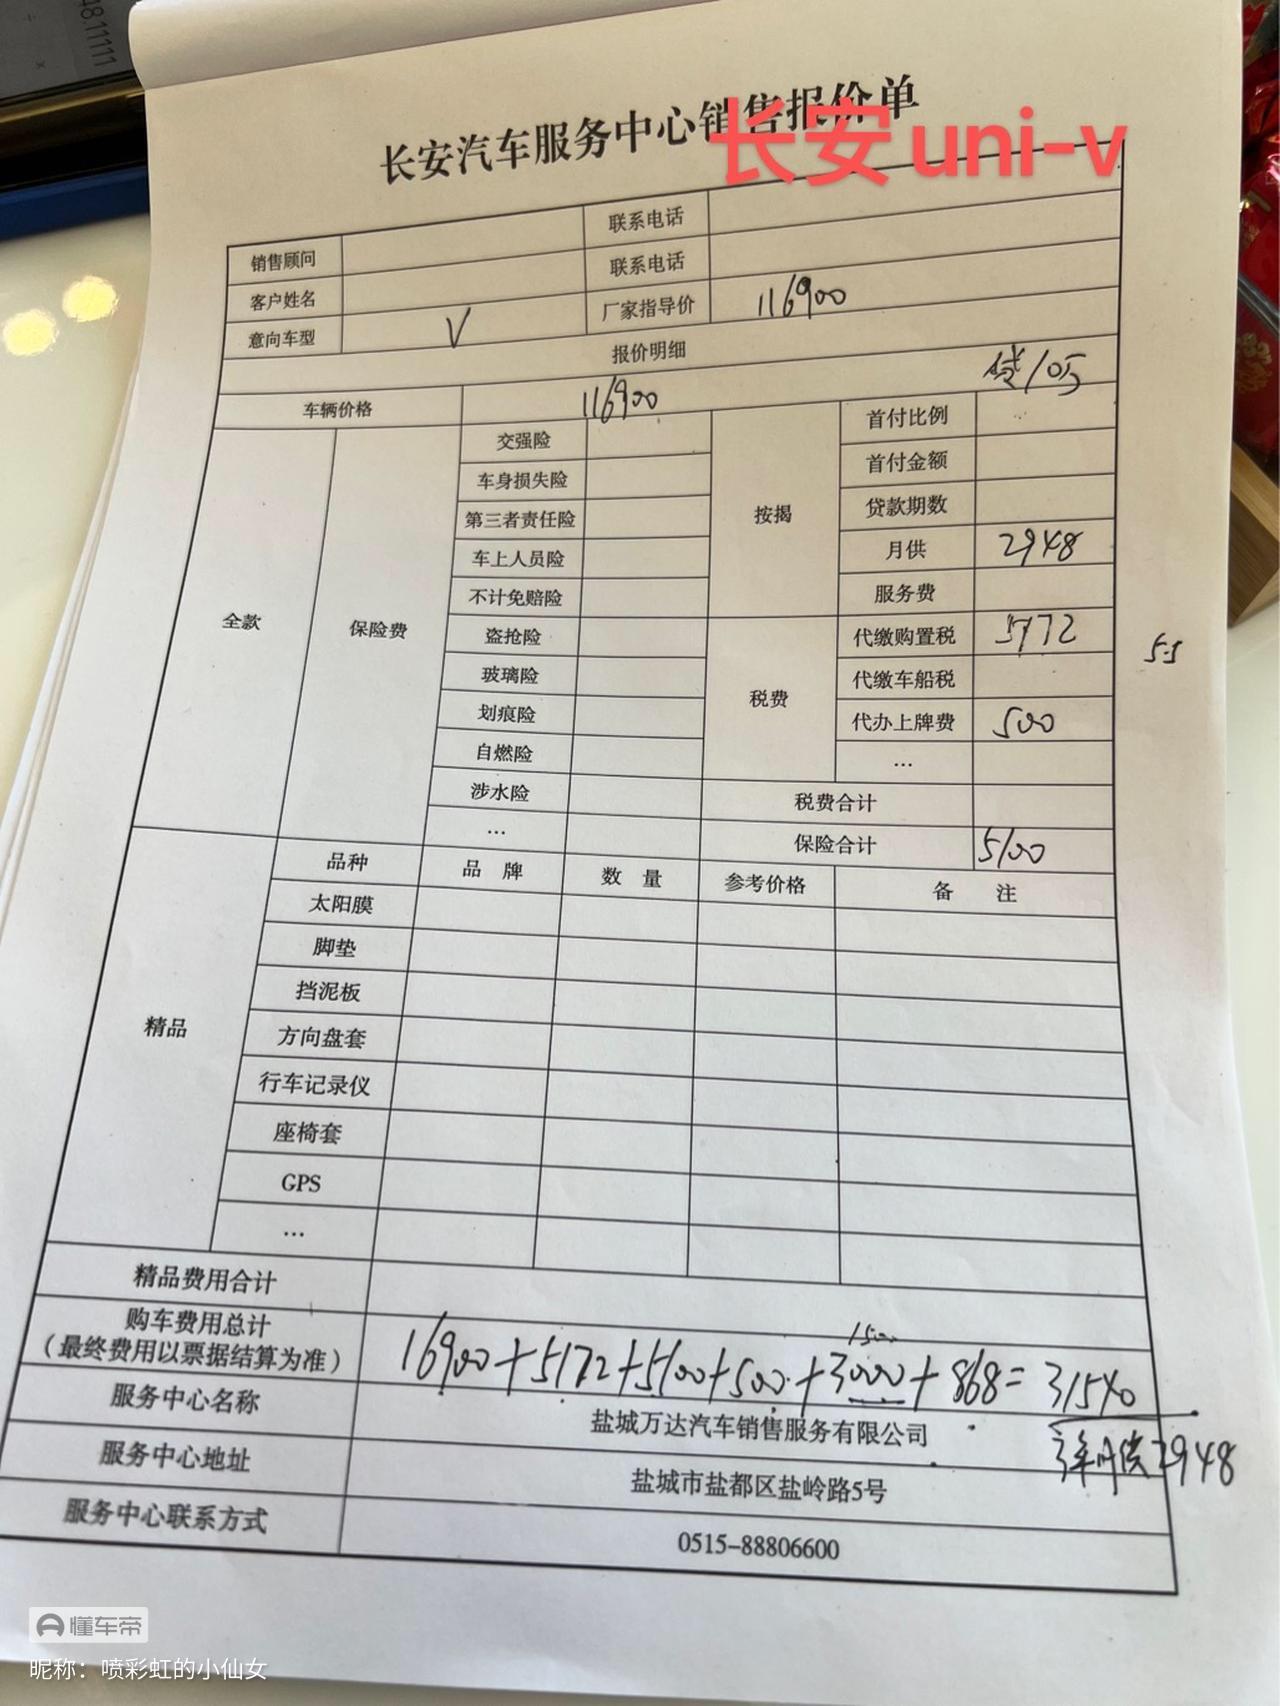 48.11111
长安汽车服务中心销售报价单
长安uni-v
销售顾问 联系电话
客户姓名 联系电话
意向车型 V 厂家指导价 116900
报价明细
贷10万
车辆价格 116900
全款 保险费 交强险 按揭 首付比例
车身损失险 首付金额
第三者责任险 贷款期数
车上人员险 月供 2948
不计免赔险 服务费
盗抢险 税费 代缴购置税 5172
5.5
玻璃险 代缴车船税
划痕险 代办上牌费 500
自燃险 …
涉水险 税费合计
… 保险合计 5100
精品 品种 品牌 数量 参考价格 备注
太阳膜
脚垫
挡泥板
方向盘套
行车记录仪
座椅套
GPS
…
精品费用合计
购车费用总计
(最终费用以票据结算为准)
1500
16900+5172+5100+500+3000+868=31540
服务中心名称 盐城万达汽车销售服务有限公司
3年月供2948
服务中心地址 盐城市盐都区盐岭路5号
服务中心联系方式 0515-88806600
懂车帝
昵称：喷彩虹的小仙女